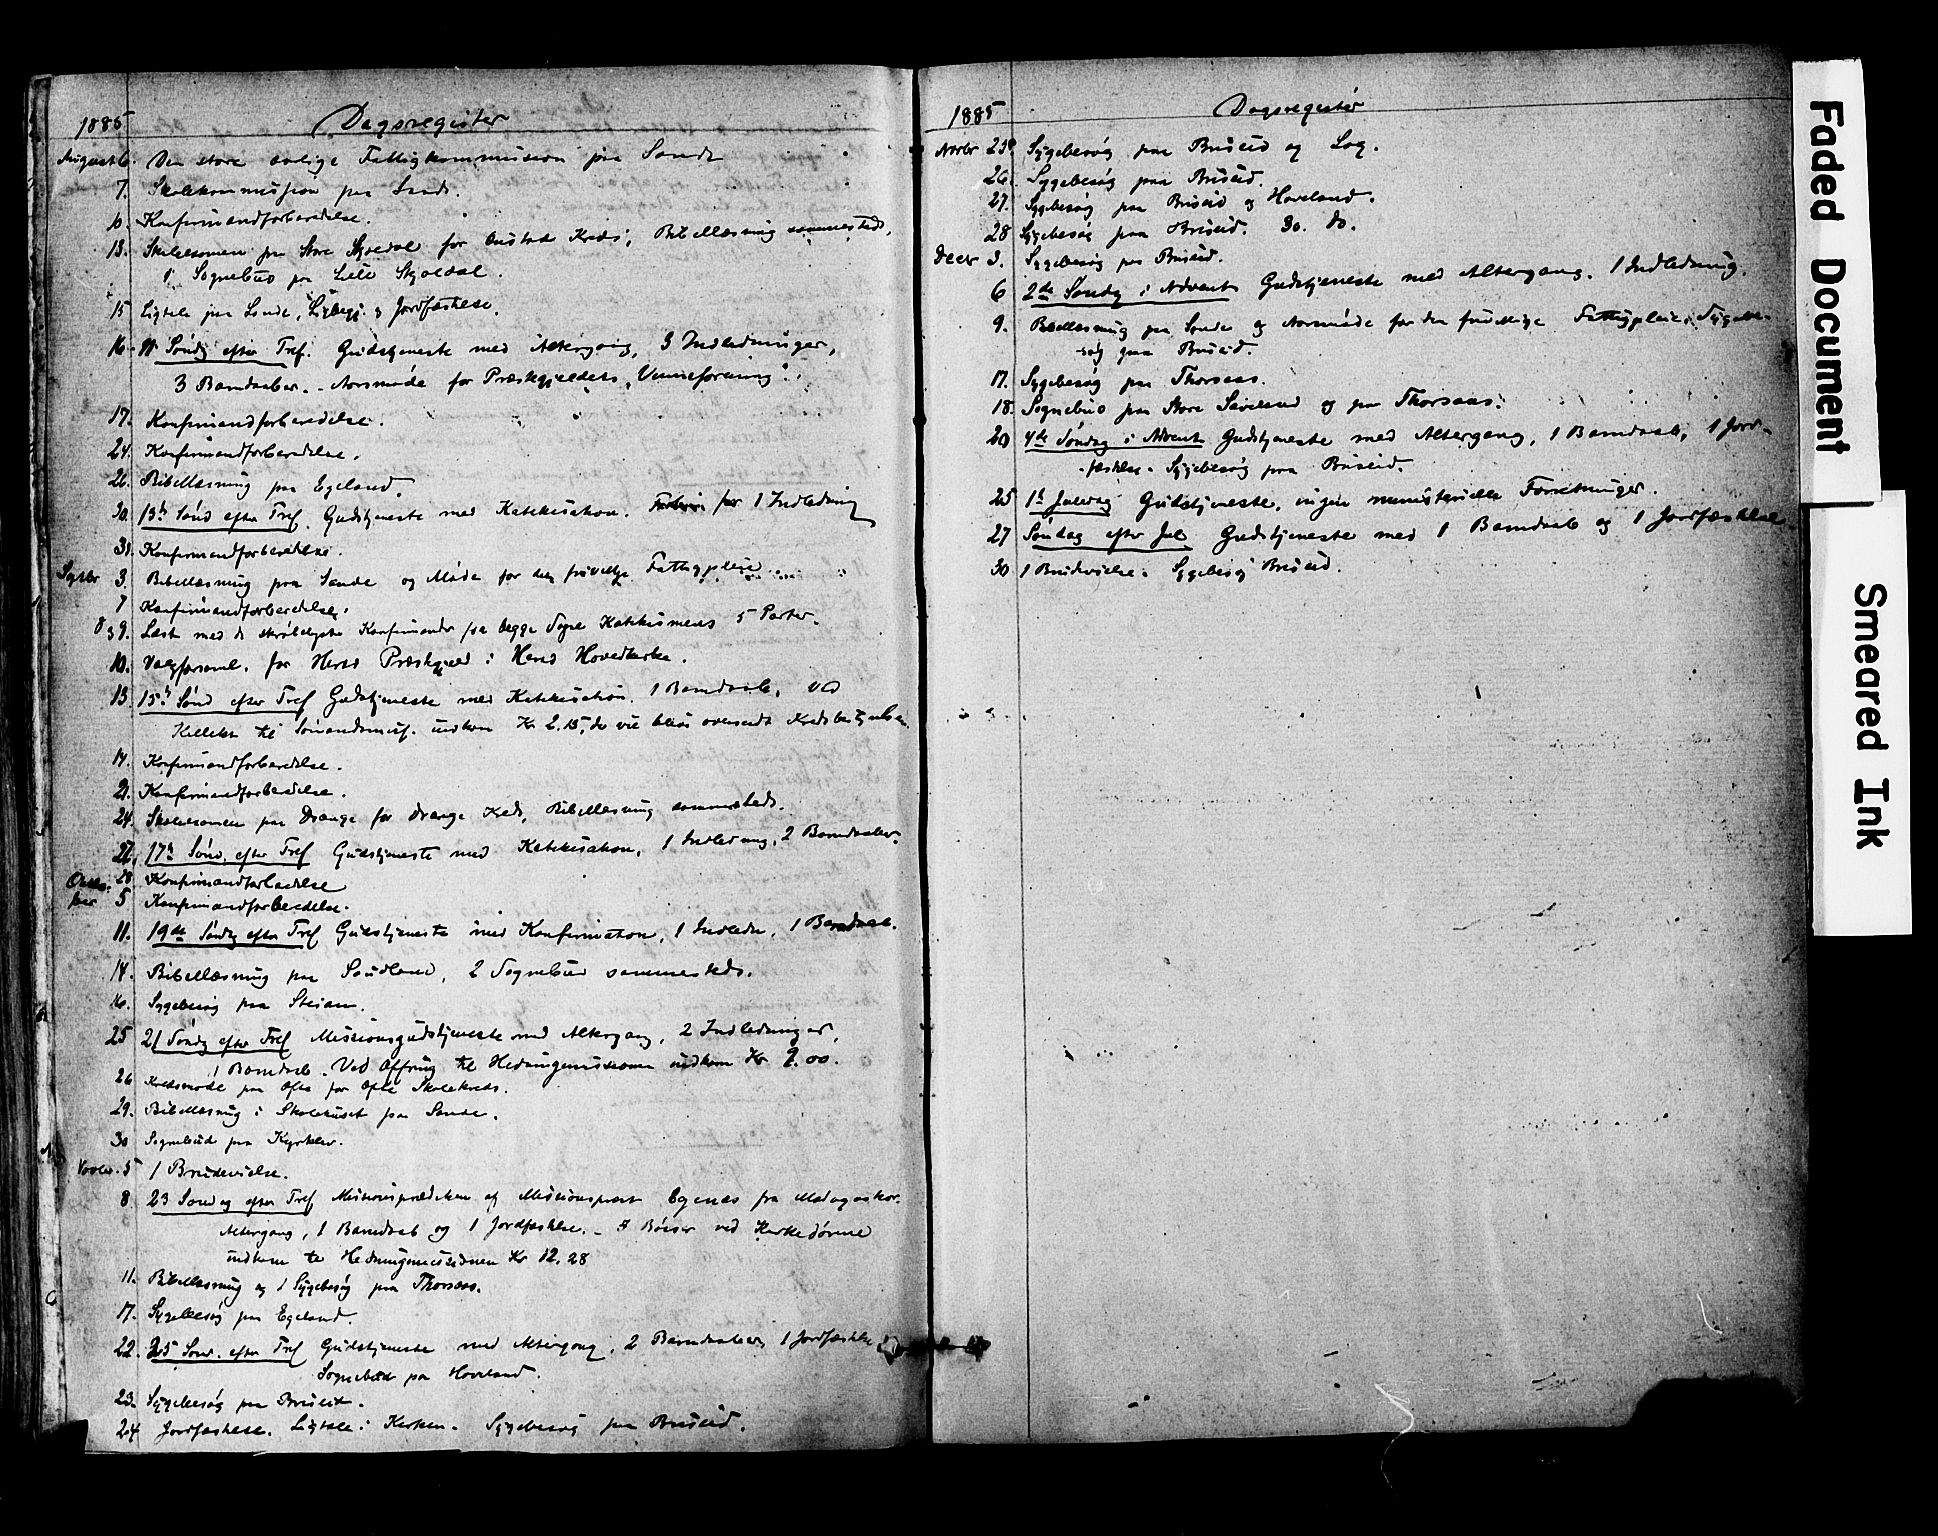 1885 Dagsregister
August 6. Den store aarlige Fattigkommission paa Sande
7. Skolekommission paa Sande.
10. Konfirmandforberedelse.
13. Skoleexamen paa Store Skjoldal for Kreds; Bibellæsning sammesteds,
1 Sognebud paa Lille Skjoldal.
15 Ligtale paa Sande, Jordfæstelse.
16. 11 Søndg efter Tref. Gudstjeneste med Altergang, 3 Indledninger,
3 Barndaaber. - Aarsmøde for Præstegjeldets "Venneforening".
17. Konfirmandforberedelse.
24. Konfirmandforberedelse.
26. Bibellæsning paa Egeland.
30. 13de Sønd efter Tref. Gudstjeneste med Katekisation. for 1 Indledning
31. Konfirmandforberedelse.
Septbr 3. Bibellæsning paa Sande og Møde for den frivillige Fattigpleie
7 Konfirmandforberedelse.
8 & 9. Læst med de Konfirmander fra begge Sogne Katekismens 5 Parter.
10. Valgforsaml. for Hered Præstegjeld i Hered Hovedkirke.
13. 15de Sønd efter Tref Gudstjeneste med Katekisation. 1 Barndaab. Ved
Kollekt til Sømandsmis. indkom Kr 2.15, de vil blive oversendt Kredsbestyrelsen
14. Konfirmandforberedelse.
21. Konfirmandforberedelse.
24. Skoleexamen paa Drange for Drange Kreds, Bibellæsning sammesteds.
27. 17de Sønd. efter Tref Gudstjeneste med Katekisation, 1 Indledning, 2 Barndaaber.
28 Konfirmandforberedelse
Oktober 5 Konfirmandforberedelse.
11. 19de Søndg efter Tref Gudstjeneste med Konfirmation, 1 Indledn, 1 Barndaab.
14. Bibellæsning paa Saudland, 2 Sognebud sammesteds.
16. Sygebesøg paa
25 21 Søndg efter Tref Missionsgudstjeneste med Altergang, 2 Indledninger,
1 Barndaab. Ved Offring til Hedningemissionen indkom Kr 9.00.
26 Kredsmøde paa Ofte for Ofte Skolekreds.
29. Bibellæsning i Skolehuset paa Sande.
30 Sognebud paa
Novbr. 5 1 Brudevielse.
8. 23 Søndag efter Tref Missionsprædiken af Missionsprest Egenæs fra Madagaskar.
Altergang, 1 Barndaab og 1 Jordfæstelse. - Bøsser ved Kirkedørene
indkom til Hedningemissionen Kr 12.28
11. Bibellæsning og 1 Sygebesøg paa Thorsaas.
17. Sygebesøg paa Egeland.
22. 25 Sønd. efter Tref Gudstjeneste med Altergang, 2 Barndaaber, 1 Jordfæstelse
Sognebud paa Hoveland.
23. Sygebesøg paa Briseid.
24 Jordfæstelse. Ligtale i Kirken. Sygebesøg paa Briseid.
1885 Dagsregister
Novbr 25. Sygebesøg paa Briseid og Log.
26. Sygebesøg paa Briseid.
27. Sygebesøg paa Briseid og Hoveland.
28 Sygebesøg paa Briseid. 30. do.
Decbr 3. Sygebesøg paa Briseid.
6 2de Søndg i Advent Gudstjeneste med Altergang. 1 Indledning.
9. Bibellæsning paa Sande og Aarsmøde for den frivillige Fattigpleie. Sygebe-
søg paa Briseid.
17. Sygebesøg paa Thorsaas.
18. Sognebud paa Store Sæveland og paa Thorsaas.
20 4de Søndag i Advent Gudstjeneste med Altergang, 1 Barndaab, 1 Jord-
fæstelse. Sygebesøg paa Briseid.
25 1te Juledag Gudstjeneste, ingen ministerielle Forretninger.
27 Søndag efter Jul Gudstjeneste med 1 Barndaab og 1 Jordfæstelse.
30 1 Brudevielse. Sygebesøg Briseid.
Faded Document
Smeared Ink